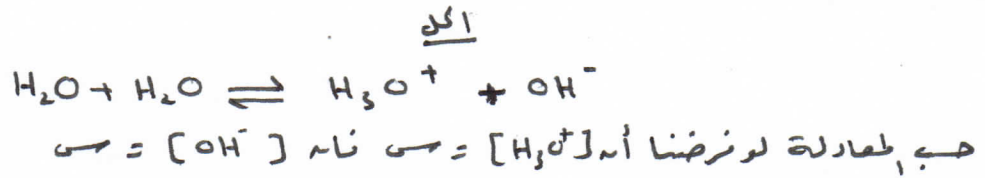 الحل
H₂O + H₂O ⇌ H₃O⁺ + OH⁻
حسب المعادلة لو فرضنا أن [H₃O⁺] = س فان [OH⁻] = س